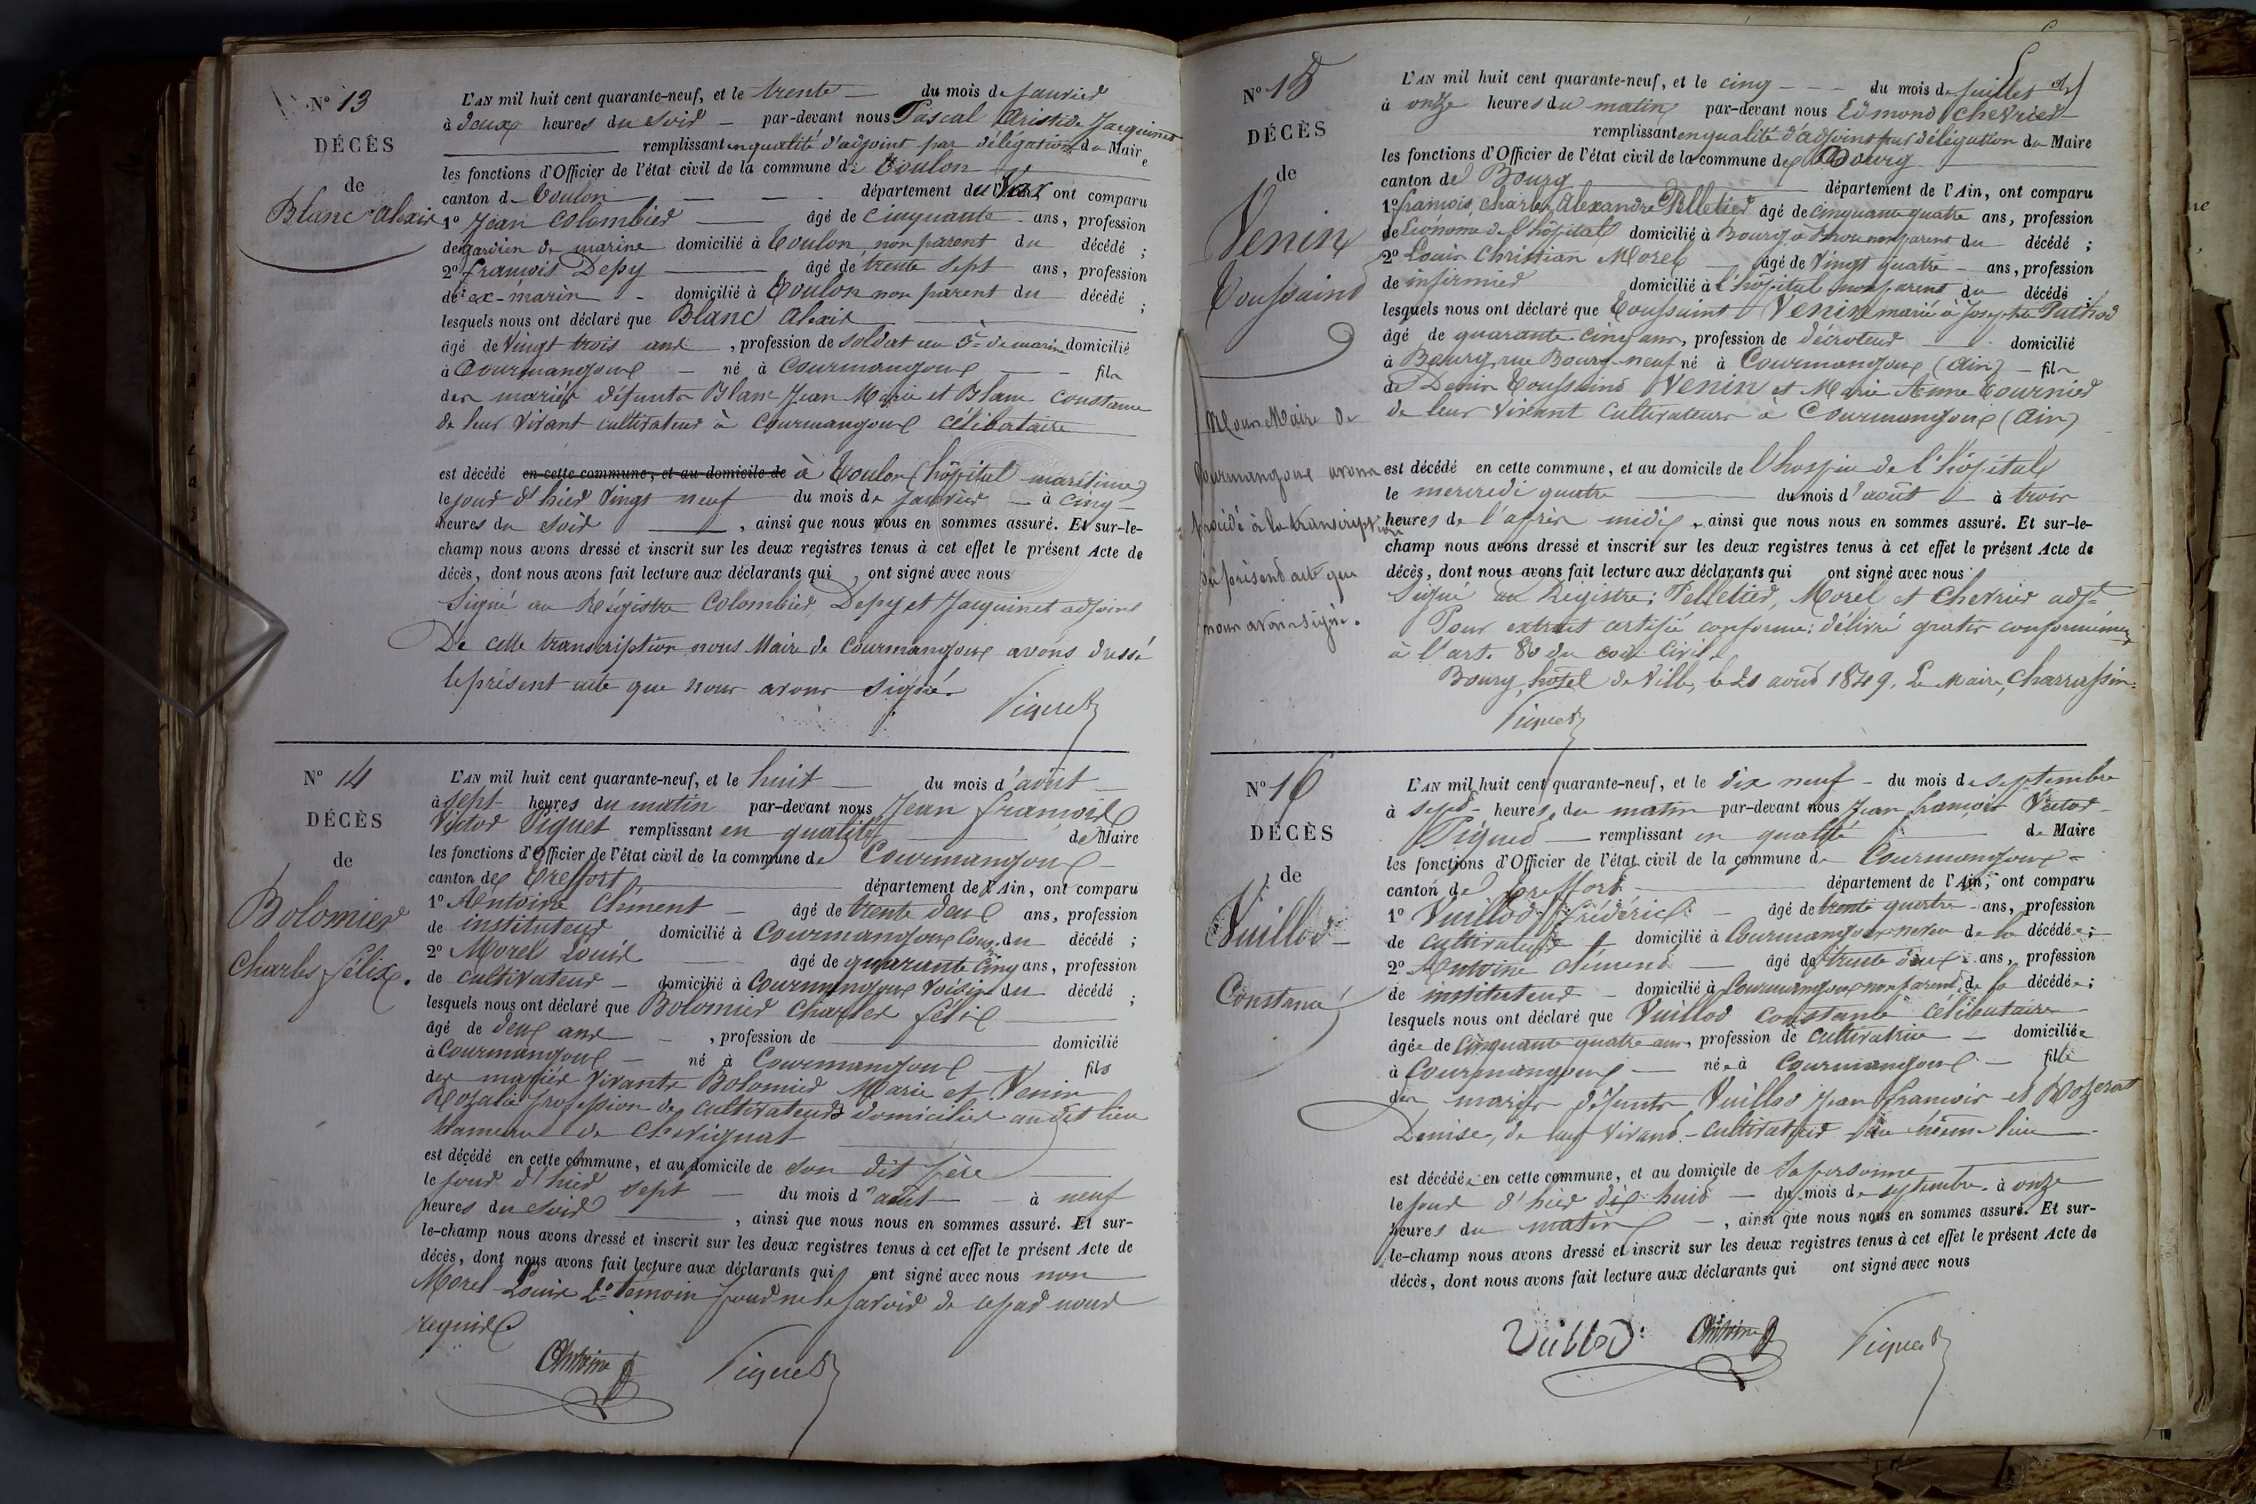 N° 13
DÉCÈS
de
Blanc Alexis
L'AN mil huit cent quarante-neuf, et le trente du mois de janvier
à deux heures du soir par-devant nous Pascal Aristide Jacquinet
remplissant en qualité d'adjoint par délégation du Maire
les fonctions d'Officier de l'état civil de la commune de Toulon
canton de Toulon département du Var ont comparu
1° Jean Colombier âgé de cinquante ans, profession
de gardien de marine domicilié à Toulon non parent du décédé ;
2° françois Depy âgé de trente sept ans, profession
de ex-marin domicilié à Toulon non parent du décédé ;
lesquels nous ont déclaré que Blanc Alexis
âgé de Vingt trois ans, profession de soldat au 3e de marine domicilié
à Courmangoux né à Courmangoux fils
des mariés défunts Blanc Jean Marie et Blanc Constance
de leur vivant cultivateur à Courmangoux célibataire
est décédé en cette commune, et au domicile de à Toulon (hôpital maritime)
le jour d'hier vingt neuf du mois de janvier à cinq
heures du soir, ainsi que nous nous en sommes assuré. Et sur-le-
champ nous avons dressé et inscrit sur les deux registres tenus à cet effet le présent Acte de
décès, dont nous avons fait lecture aux déclarants qui, ont signé avec nous
Signé au Régistre Colombier, Depy et Jacquinet adjoint
De cette transcription nous Maire de Courmangoux avons dressé
le présent acte que nous avons signé.
Piquet
N° 14
DÉCÈS
de
Bolomier
Charles félix.
L'AN mil huit cent quarante-neuf, et le huit du mois d'août
à sept heures du matin par-devant nous Jean françois
Victor Piquet remplissant en qualité de Maire
les fonctions d'Officier de l'état civil de la commune de Courmangoux
canton de Treffort département de l'Ain, ont comparu
1° Antoine Clément âgé de trente deux ans, profession
de instituteur domicilié à Courmangoux du décédé ;
2° Morel Louis âgé de quarante cinq ans, profession
de cultivateur domicilié à Courmangoux voisin du décédé ;
lesquels nous ont déclaré que Bolomier Charles félix
âgé de deux ans, profession de domicilié
à Courmangoux né à Courmangoux fils
des mariés vivants Bolomier Marie et Venin
Rozalie profession de cultivateurs domiciliés audit lieu
hameau de Chevignat
est décédé en cette commune, et au domicile de son dit père
le jour d'hier sept du mois d'août à neuf
heures du soir, ainsi que nous nous en sommes assuré. Et sur-
le-champ nous avons dressé et inscrit sur les deux registres tenus à cet effet le présent Acte de
décès, dont nous avons fait lecture aux déclarants qui ont signé avec nous non
Morel Louis 2e témoin pour ne le savoir de ce par nous
requis.
Antoine Piquet
N° 15
DÉCÈS
de
Venin
Toussaint
Nous Maire de
Courmangoux avons
procédé à la transcription
du présent acte que
nous avons signé.
L'AN mil huit cent quarante-neuf, et le cinq du mois de juillet
à onze heures du matin par-devant nous Edmond Chevrier
remplissant en qualité d'adjoint par délégation du Maire
les fonctions d'Officier de l'état civil de la commune de Bourg
canton de Bourg département de l'Ain, ont comparu
1° françois, Charles, Alexandre Pelletier âgé de cinquante quatre ans, profession
de Econome de l'hôpital domicilié à Bourg non parent du décédé ;
2° Louis Christian Morel âgé de Vingt quatre ans, profession
de infirmier domicilié à l'hôpital non parent du décédé ;
lesquels nous ont déclaré que Toussaint Venin marié à Josephte Puthod
âgé de quarante cinq ans, profession de décroteur domicilié
à Bourg, rue Bourg-neuf né à Courmangoux (Ain) fils
de Denis Toussaint Venin et Marie Anne Tournier
de leur vivant cultivateurs à Courmangoux (Ain)
est décédé en cette commune, et au domicile de l'hospice de l'hôpital
le mercredi quatre du mois d'août à trois
heures de l'après midi, ainsi que nous nous en sommes assuré. Et sur-le-
champ nous avons dressé et inscrit sur les deux registres tenus à cet effet le présent Acte de
décès, dont nous avons fait lecture aux déclarants qui ont signé avec nous
Signé au Registre: Pelletier, Morel et Chevrier adjt
Pour extrait certifié conforme: délivré gratis conformément
à l'art. 80 du code Civil.
Bourg, hôtel de Ville, le 21 août 1849. Le Maire, Charrassin.
Piquet
N° 16
DÉCÈS
de
Vuillod
Constance
L'AN mil huit cent quarante-neuf, et le dix neuf du mois de septembre
à sept heures du matin par-devant nous Jean françois Victor
Piquet remplissant en qualité de Maire
les fonctions d'Officier de l'état civil de la commune de Courmangoux
canton de Treffort département de l'Ain, ont comparu
1° Vuillod frédéric âgé de trente quatre ans, profession
de cultivateur domicilié à Courmangoux neveu de la décédée ;
2° Antoine Clément âgé de trente deux ans, profession
de instituteur domicilié à Courmangoux non parent de la décédée ;
lesquels nous ont déclaré que Vuillod Constance célibataire
âgée de cinquante quatre ans, profession de cultivatrice domiciliée
à Courmangoux née à Courmangoux fille
des mariés défunts Vuillod Jean françois et Rozerat
Denise, de leur vivant cultivateur du même lieu
est décédée en cette commune, et au domicile de sa personne
le jour d'hier dix huit du mois de septembre à onze
heures du matin, ainsi que nous nous en sommes assuré. Et sur-
le-champ nous avons dressé et inscrit sur les deux registres tenus à cet effet le présent Acte de
décès, dont nous avons fait lecture aux déclarants qui ont signé avec nous
Vuillod Antoine Piquet